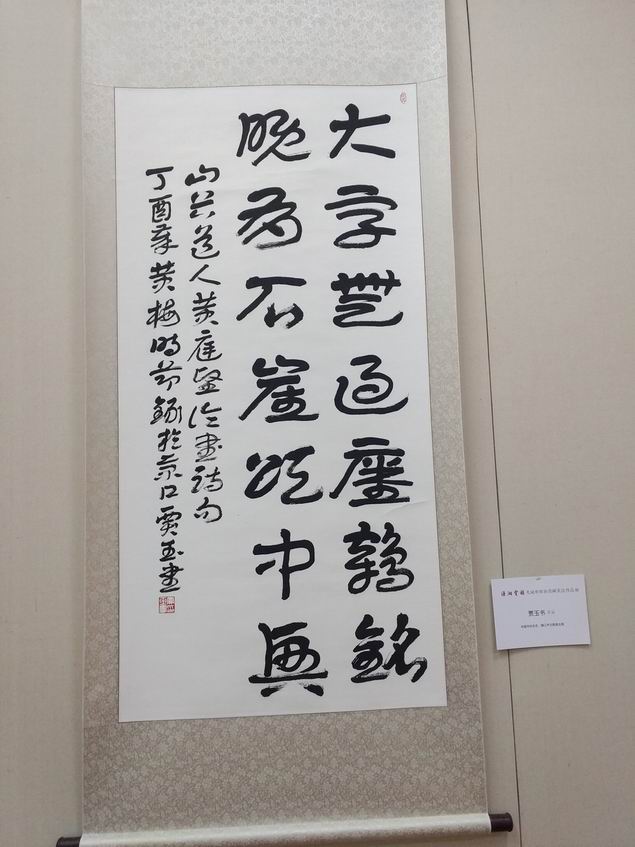 大字無過瘞鶴銘
晚有石崖頌中興
山谷道人黄庭堅論書詩句
丁酉年黄梅時節錄於京口賈玉書
贾玉书